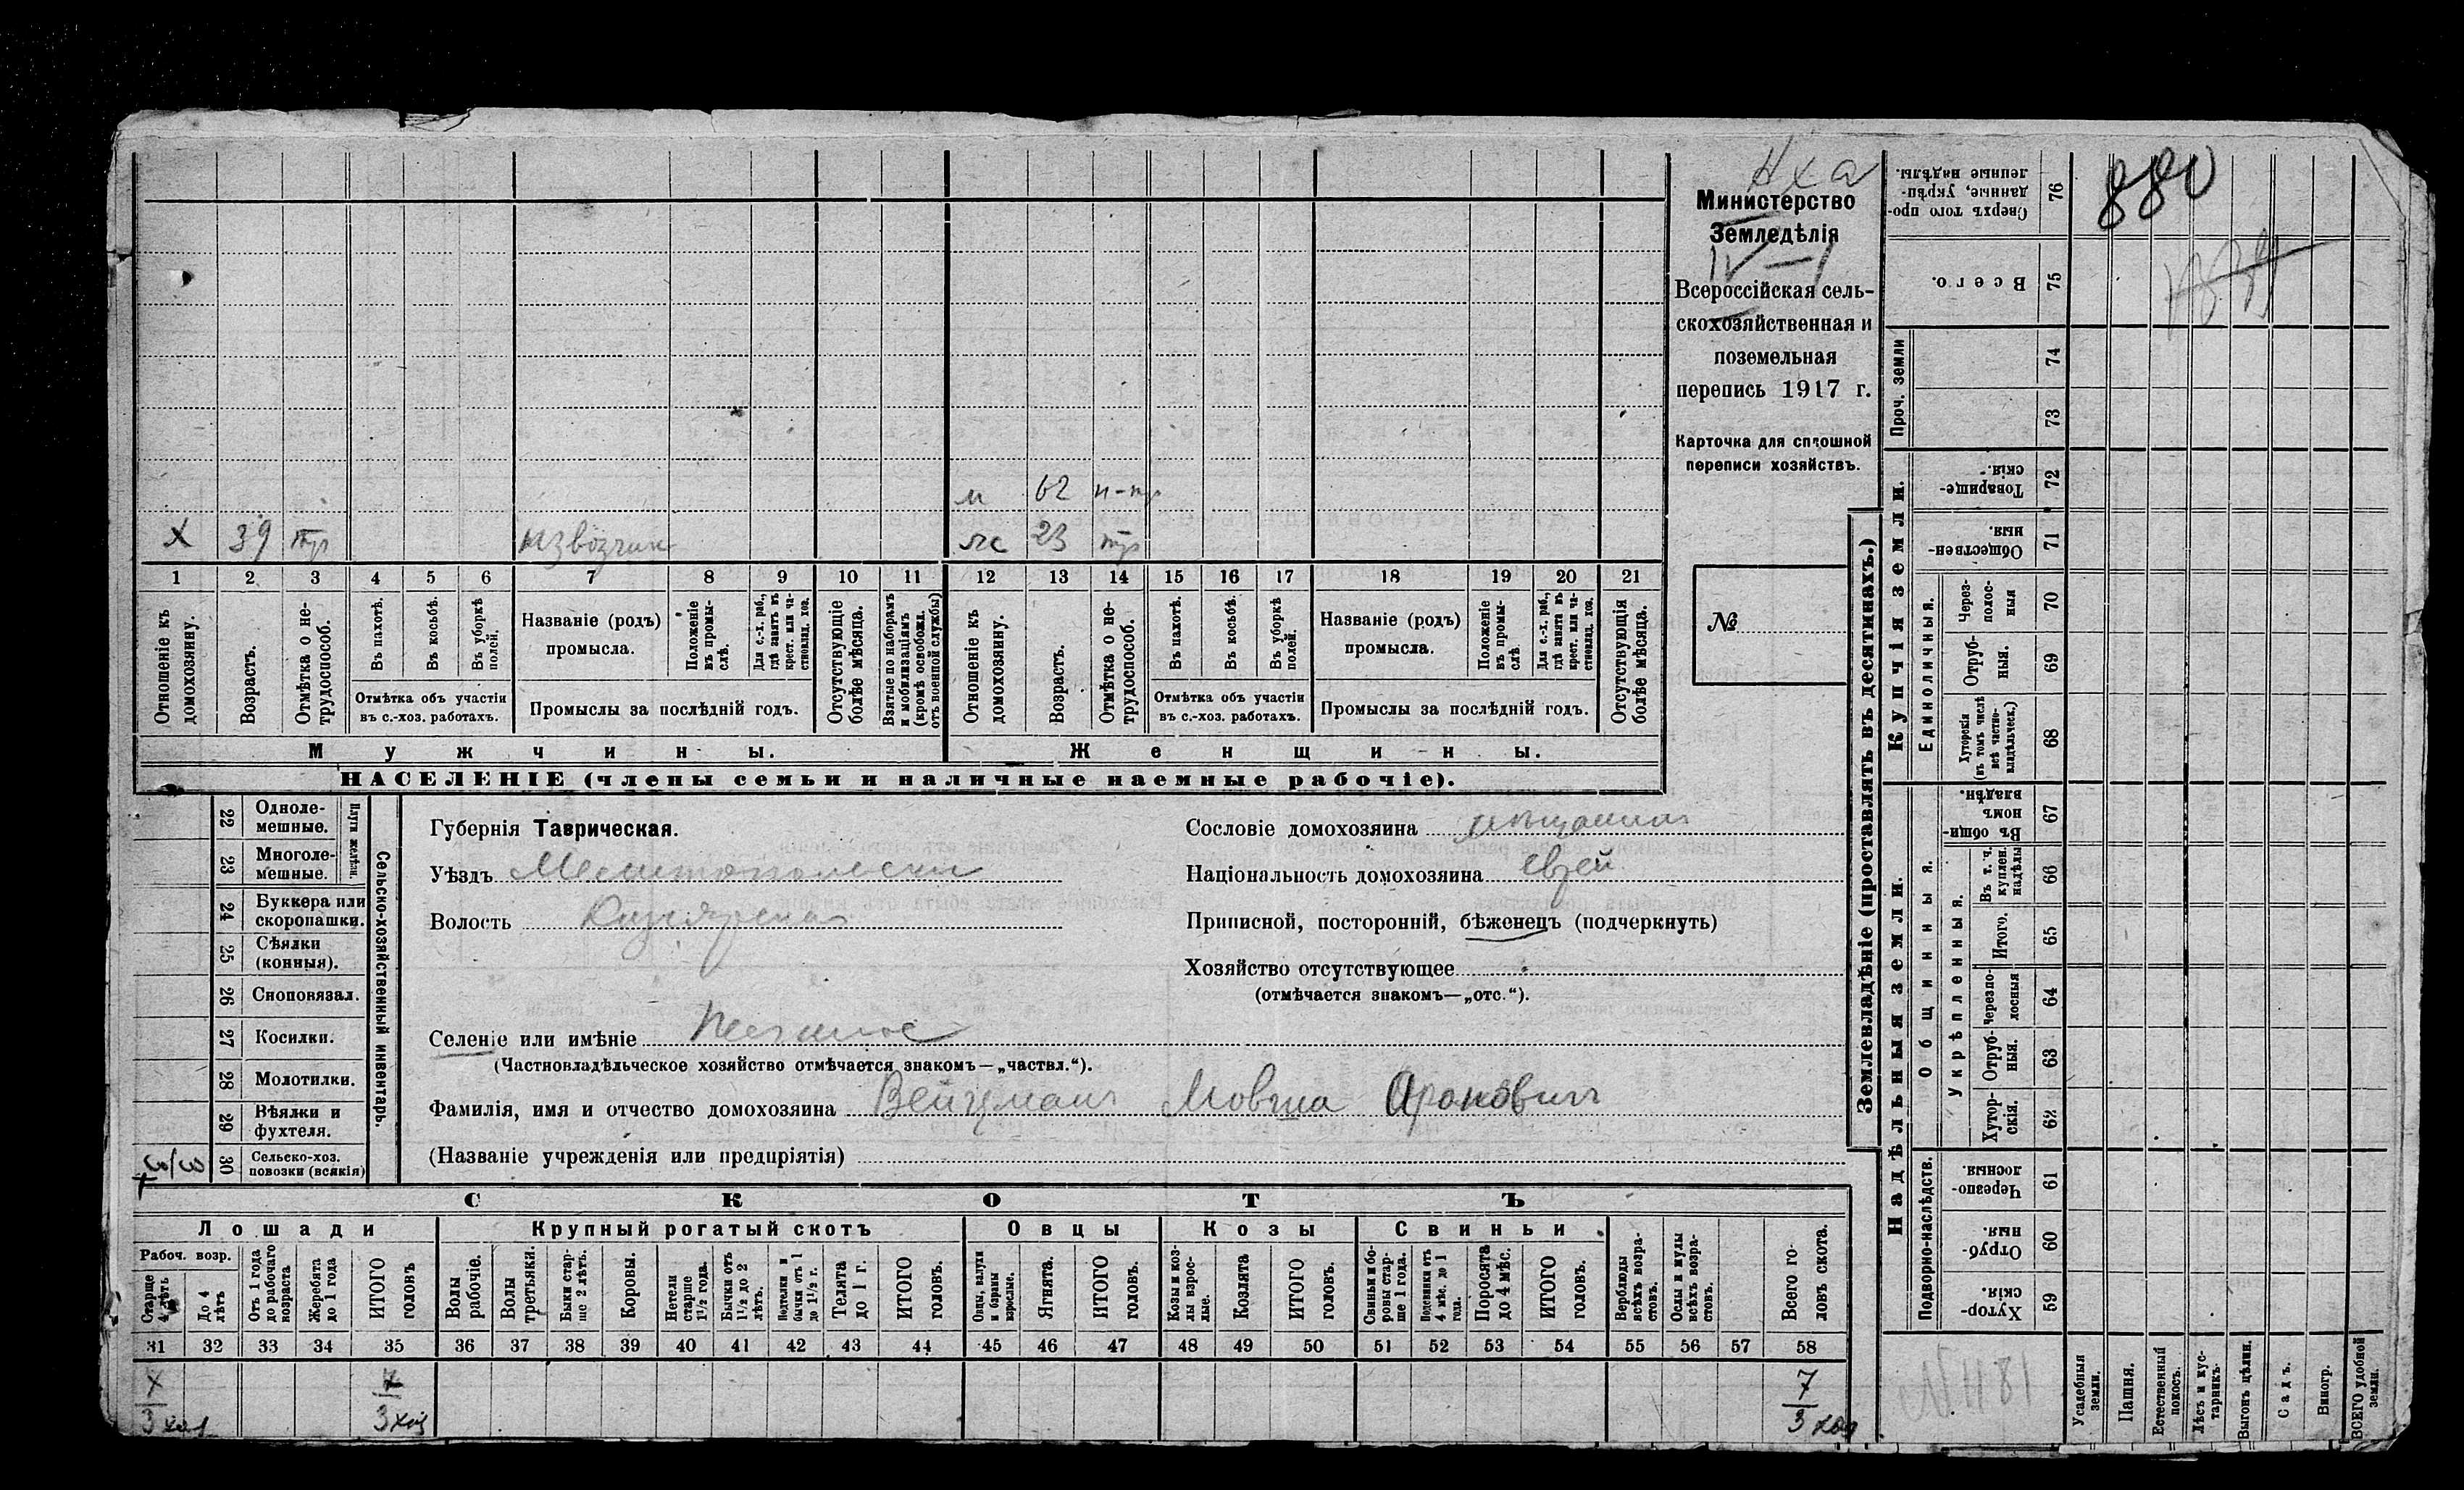 880
Министерство
Земледѣлія
IV—1
Всероссійская сель-
скохозяйственная и
поземельная
перепись 1917 г.
Карточка для сплошной
переписи хозяйствъ.
№
м 62 н-тр
х 39 тр извозчик ж 23 тр
1 2 3 4 5 6 7 8 9 10 11 12 13 14 15 16 17 18 19 20 21
Отношеніе къ домохозяину.
Возрастъ.
Отмѣтка о не-трудоспособ.
Въ пахотѣ.
Въ косьбѣ.
Въ уборкѣ полей.
Отмѣтка объ участіи
въ с.-хоз. работахъ.
Названіе (родъ)
промысла.
Положеніе въ промы-слѣ.
Для с.-х. раб., гдѣ занятъ въ крест. или ча-стновлад. хоз.
Промыслы за послѣдній годъ.
Отсутствующіе болѣе мѣсяца.
Взятые по наборамъ и мобилизаціямъ (кромѣ освобожд. отъ военной службы)
Отношеніе къ домохозяину.
Возрастъ.
Отмѣтка о не-трудоспособ.
Въ пахотѣ.
Въ косьбѣ.
Въ уборкѣ полей.
Отмѣтка объ участіи
въ с.-хоз. работахъ.
Названіе (родъ)
промысла.
Положеніе въ промы-слѣ.
Для с.-х. раб., гдѣ занята въ крест. или ча-стновлад. хоз.
Промыслы за послѣдній годъ.
Отсутствующія болѣе мѣсяца.
Мужчины. Женщины.
НАСЕЛЕНІЕ (члены семьи и наличные наемные рабочіе).
Сельско-хозяйственный инвентарь.
Плуги желѣзн.
22 Одноле-мешные.
23 Многоле-мешные.
24 Буккера или скоропашки.
25 Сѣялки (конныя).
26 Сноповязал.
27 Косилки.
28 Молотилки.
29 Вѣялки и фухтеля.
30 Сельско-хоз. повозки (всякія)
Губернія Таврическая.
Уѣздъ Мелитопольски
Волость
Селеніе или имѣніе
(Частновладѣльческое хозяйство отмѣчается знакомъ—„частвл.“).
Фамилія, имя и отчество домохозяина Вейцманъ Мовша Ароновичъ
(Названіе учрежденія или предпріятія)
Сословіе домохозяина мещанин
Національность домохозяина еврей
Приписной, посторонній, бѣженецъ (подчеркнуть)
Хозяйство отсутствующее
(отмѣчается знакомъ—„отс.“).
СКОТЪ
Лошади Крупный рогатый скотъ Овцы Козы Свиньи
Рабоч. возр.
Старше 4 лѣтъ
До 4 лѣтъ
Отъ 1 года до рабочаго возраста
Жеребята до 1 года
ИТОГО головъ
Волы рабочіе.
Волы третьяки.
Быки стар-ше 2 лѣтъ.
Коровы.
Нетели старше 1½ года.
Бычки отъ 1½ до 2 лѣтъ.
Подтелки и бычки отъ 1 до 1½ г.
Телята до 1 г.
ИТОГО головъ.
Овцы, валухи и бараны взрослые.
Ягнята.
ИТОГО головъ.
Козы и коз-лы взрос-лые.
Козлята
ИТОГО головъ.
Свиньи и бо-ровы стар-ше 1 года.
Подсвинки отъ 4 мѣс. до 1 года.
Поросята до 4 мѣс.
ИТОГО головъ.
Верблюды всѣхъ возра-стовъ.
Ослы и мулы всѣхъ возра-стовъ.
Всего го-ловъ скота.
31 32 33 34 35 36 37 38 39 40 41 42 43 44 45 46 47 48 49 50 51 52 53 54 55 56 57 58
Землевладѣніе (проставлять въ десятинахъ.)
Купчія земли.
Надѣльныя земли.
Сверхъ того про-данные, укрѣп-ленные надѣлы. 76
Всего. 75
Проч. земли 74 73
Товарище-скія. 72
Обществен-ныя. 71
Единоличныя.
Через-полос-ныя 70
Отруб-ныя. 69
Хуторскія (въ томъ числѣ всѣ частно-владѣльческ.) 68
Общинныя.
Въ общин-номъ владѣн. 67
Укрѣпленныя.
Въ т. ч. куплен. надѣлы 66
Итого. 65
Черезпо-лосныя 64
Отруб-ныя. 63
Хутор-скія. 62
Подворно-наслѣдств.
Черезпо-лосныя. 61
Отруб-ныя. 60
Хутор-скія. 59
Усадебныя земли.
Пашня.
Естественный покосъ.
Лѣсъ и кус-тарникъ.
Выгонъ цѣлин.
Садъ.
Виногр.
ВСЕГО удобной земли.